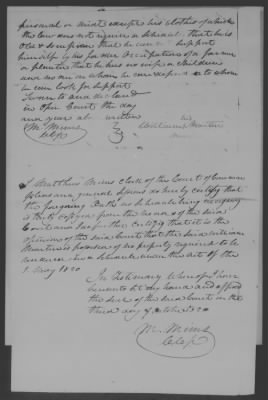 personal or mixt except his clothes of which
the law does not require a schedule that he is
old & so infirm that he cannot support
himself by his former occupation of a farmer
or planter that he has no wife or children
and no one on whom he can depend or to whom
he can look for support
Sworn to and declared
in Open Court the day
and year above written
his
William Martin
mark
M. Mims
Clk
I Matthew Mims Clerk of the Court of Common
Pleas and general Sessions do hereby certify that
the foregoing Oath and Schedule thereto
is truly copied from the records of the said
Court and I do further certify that it is the
opinion of the said Court that the said William
Martin is possessed of no property required to be
in a schedule under the act of the
1 May 1820
In Testimony Whereof I have
hereunto set my hand and affixed
the seal of the said Court on the
third day of October 1820
M. Mims
Clk